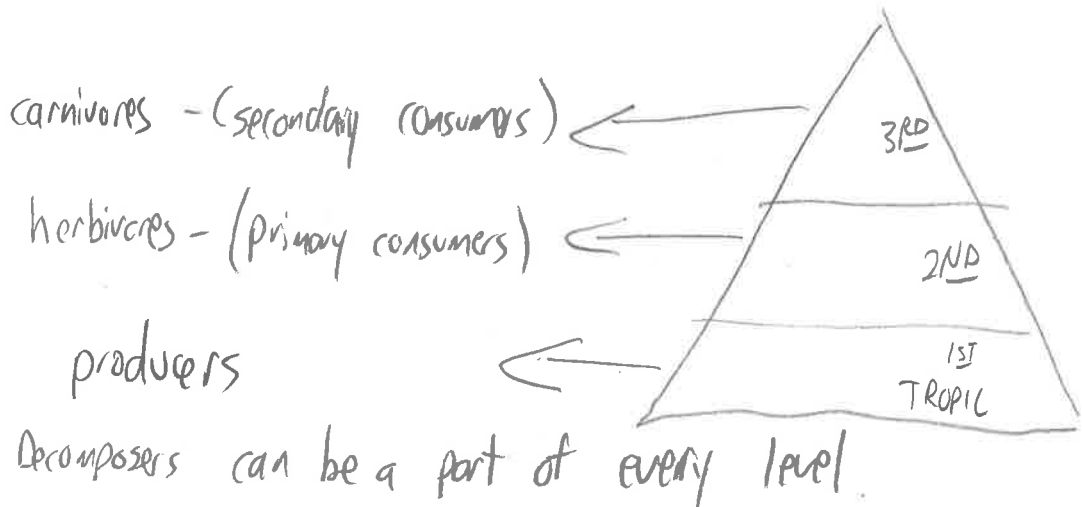 carnivores - (secondary consumers)
3RD
herbivores - (primary consumers)
2ND
producers
1ST
TROPIC
Decomposers can be a part of every level.